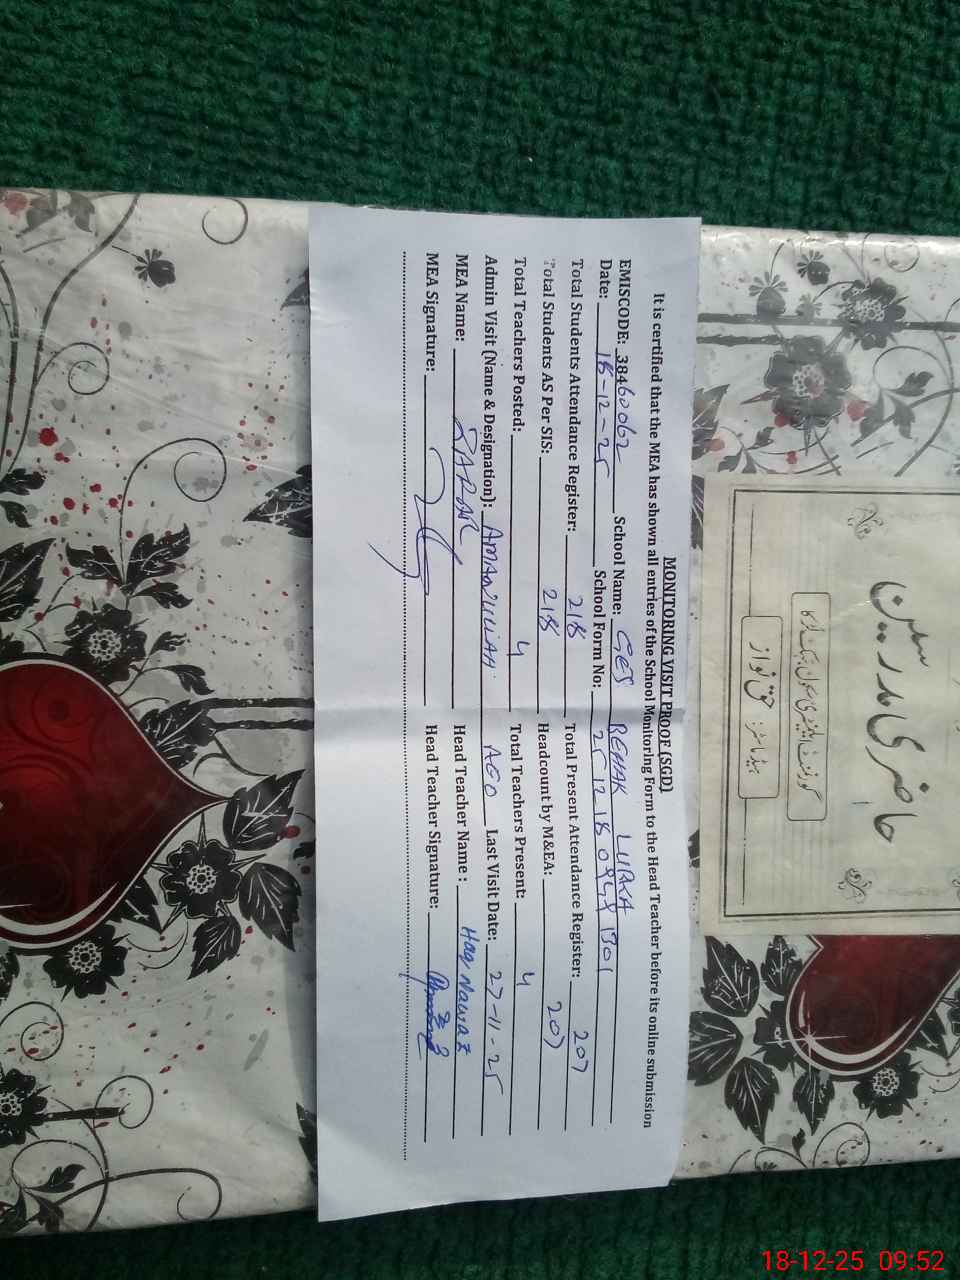 MONITORING VISIT PROOF (SGD)
It is certified that the MEA has shown all entries of the School Monitoring Form to the Head Teacher before its online submission
EMISCODE: 38460062 School Name: GES REHAK LURKA
Date: 18-12-25 School Form No: 25121809481301
Total Students Attendance Register: 218 Total Present Attendance Register: 207
Total Students AS Per SIS: 218 Headcount by M&EA: 207
Total Teachers Posted: 4 Total Teachers Present: 4
Admin Visit (Name & Designation): AMANULLAH AEO Last Visit Date: 27-11-25
MEA Name: BABAR Head Teacher Name: Haq Nawaz
MEA Signature: Head Teacher Signature:
حاضری مدرسین
ہیڈ ماسٹر: حق نواز
18-12-25 09:52